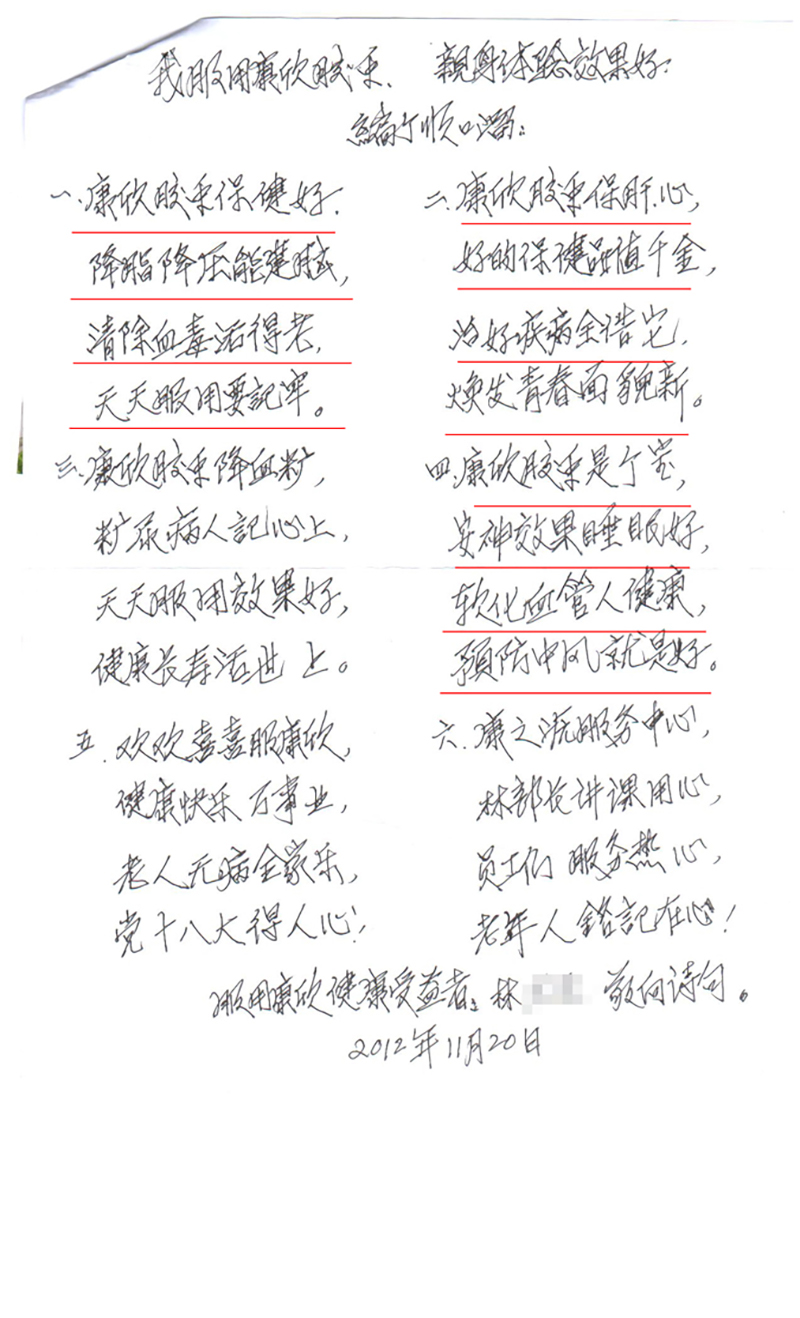 我服用康欣胶囊、親身体验效果好.
編个顺口溜：
一.康欣胶囊保健好.
降脂降压能健脑,
清除血毒活得老,
天天服用要記牢。
二.康欣胶囊保肝心,
好的保健品值千金,
治好疾病全借它,
焕发青春面貌新。
三.康欣胶囊降血糖,
糖尿病人記心上,
天天服用效果好,
健康长寿活世上。
四.康欣胶囊是个宝,
安神效果睡眠好,
软化血管人健康,
预防中风就是好。
五.欢欢喜喜服康欣,
健康快乐万事业,
老人无病全家乐,
党十八大得人心!
六.康之源服务中心,
林部长讲课用心,
员工们服务热心,
老年人銘記在心!
服用康欣健康受益者：林 敬向诗句。
2012年11月20日